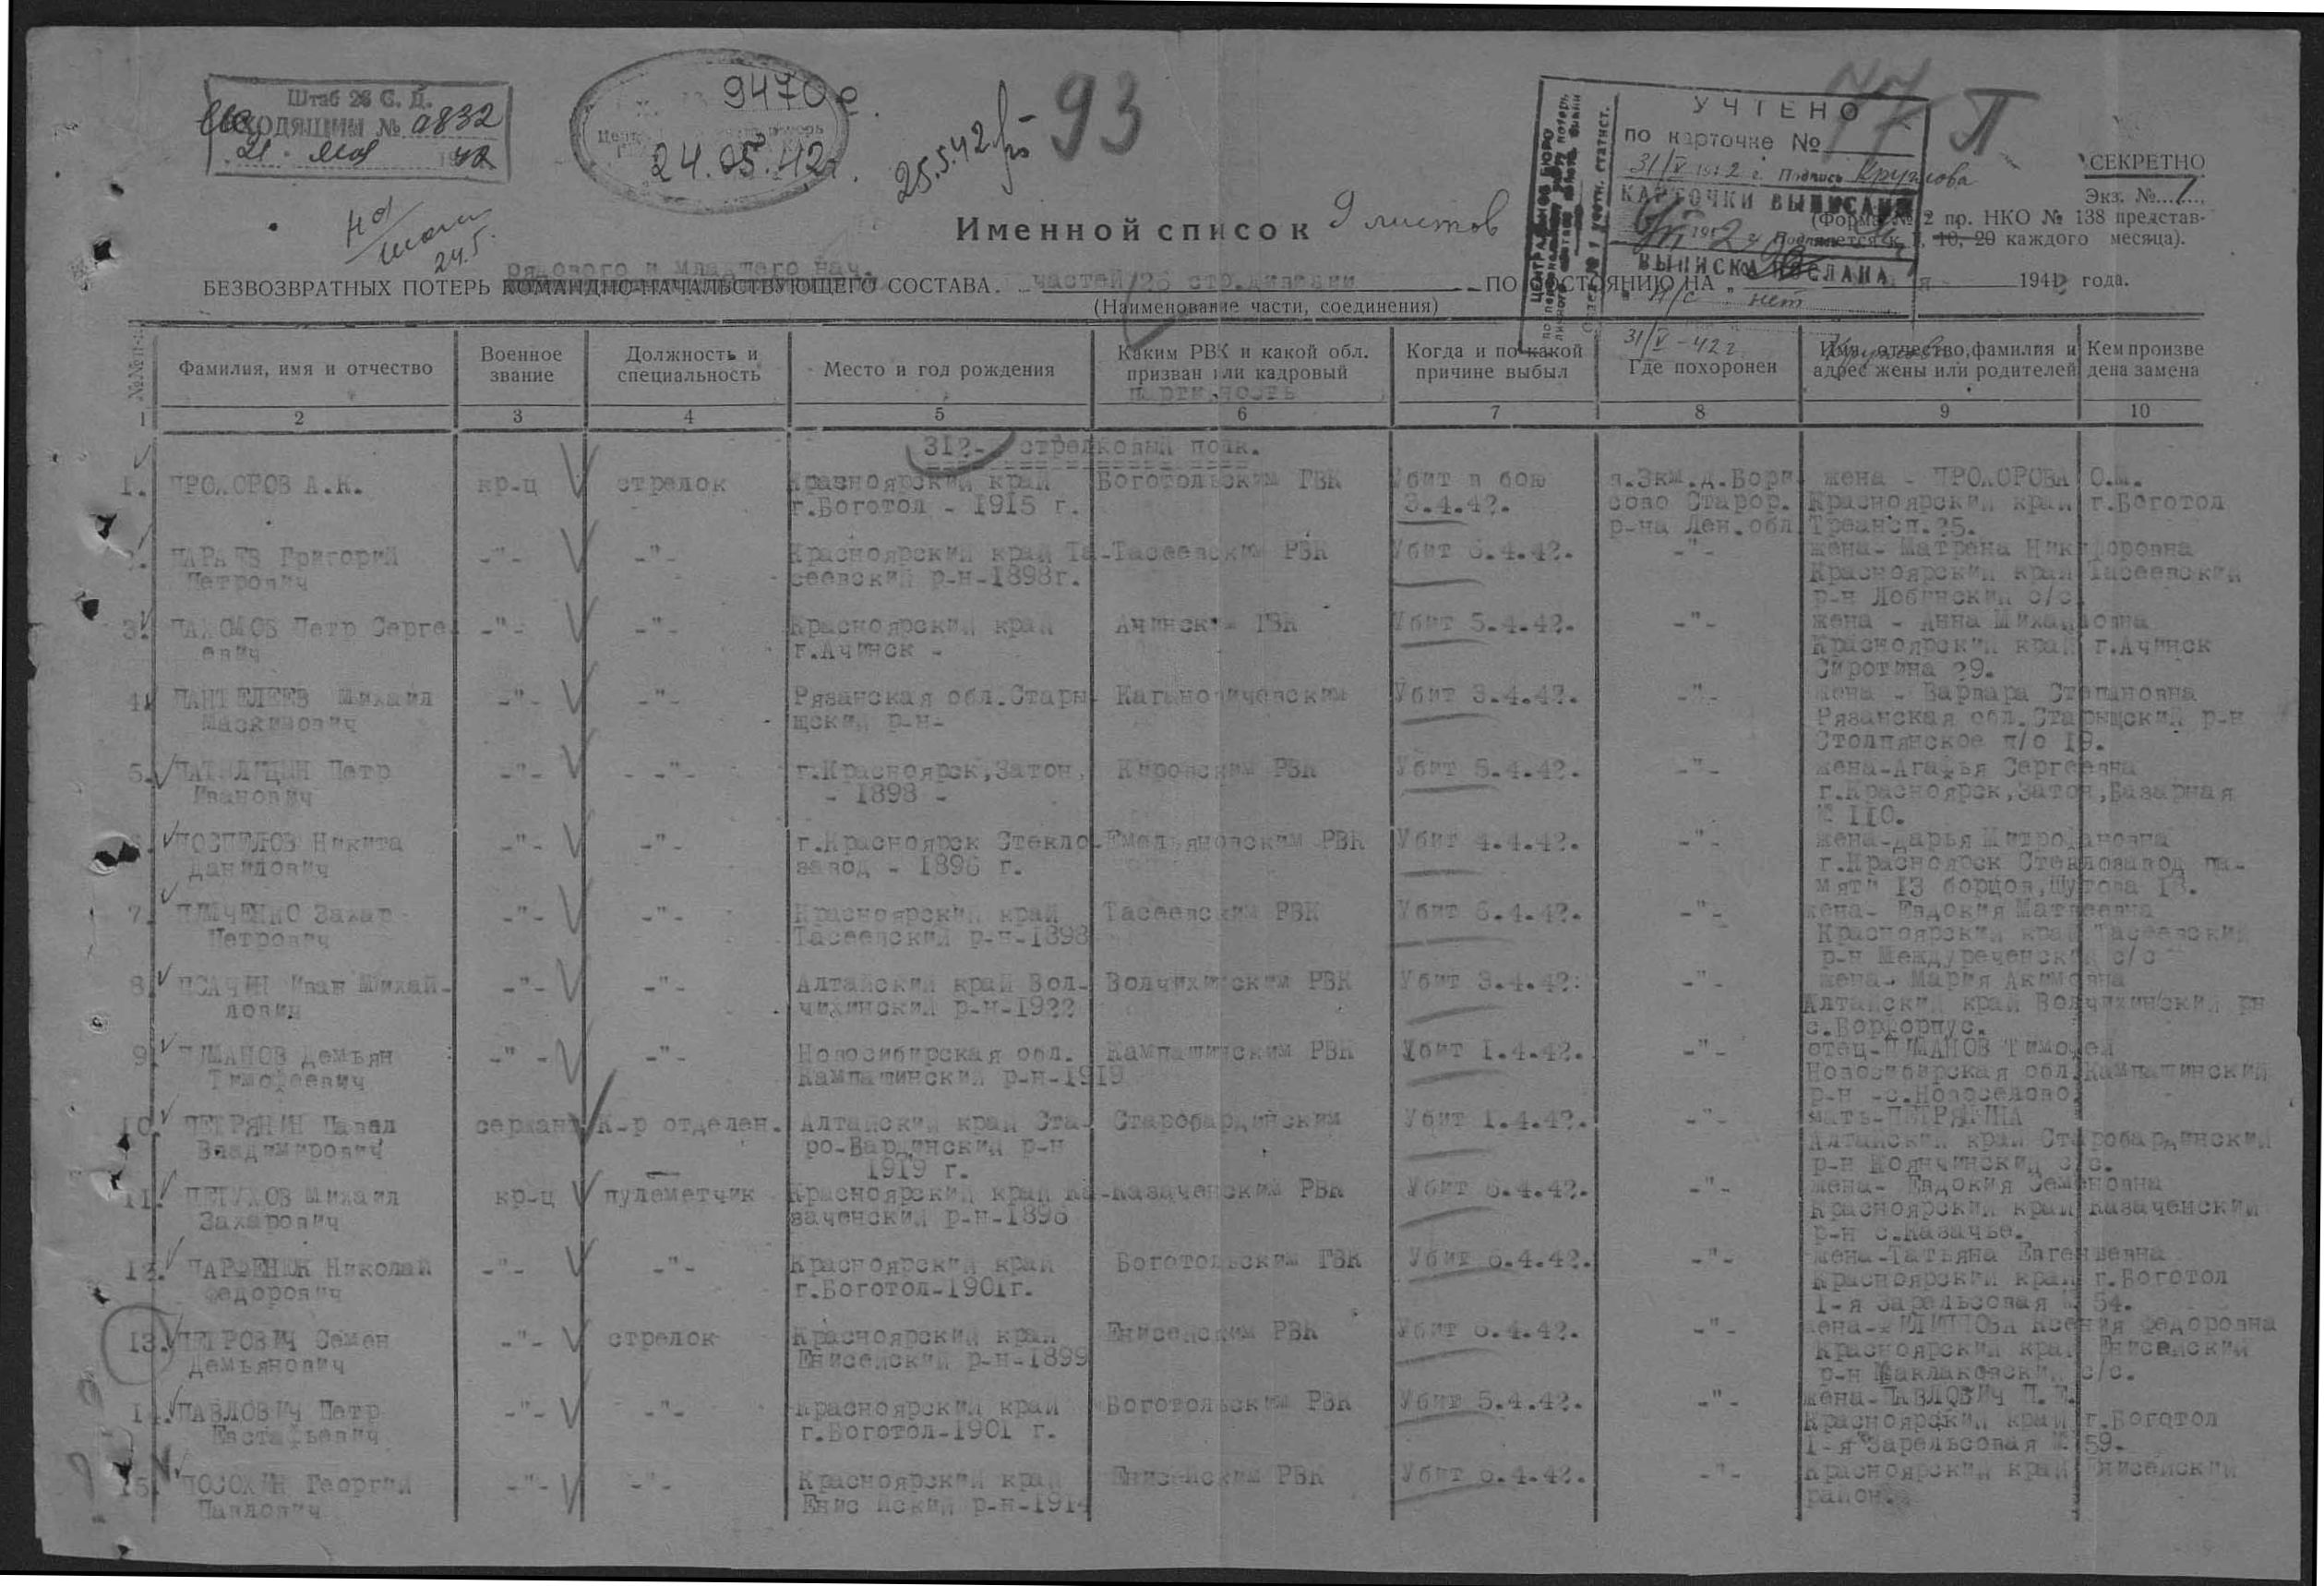 Штаб 26 С. Д.
ХОДЯЩИМ № 0832
21. мая 1942
9470с
24.05.42г.
25.5.42
93
77
П
УЧТЕНО
по карточке №
31/V 1942 г. Подпись Круглова
КАРТОЧКИ ВЫПИСАНЫ
ВЫПИСКА ПОСЛАНА
н/с нет
31/V-42 г
ЦЕНТРАЛЬНОЕ БЮРО
СЕКРЕТНО
Экз. № 1
(Форма № 2 пр. НКО № 138 представ-
ляется к 1, 10, 20 каждого месяца).
24.5.
Именной список 9 листов
рядового и младшего нач.
БЕЗВОЗВРАТНЫХ ПОТЕРЬ КОМАНДНО-НАЧАЛЬСТВУЮЩЕГО СОСТАВА. частей 26 стр.дивизии ПО СОСТОЯНИЮ НА „ 1942 года.
(Наименование части, соединения)
№№ п.п. Фамилия, имя и отчество Военное звание Должность и специальность Место и год рождения Каким РВК и какой обл. призван или кадровый партийность Когда и по какой причине выбыл Где похоронен Имя, отчество, фамилия и адрес жены или родителей Кем произведена замена
1 2 3 4 5 6 7 8 9 10
312- стрелковый полк.
1. ПРОХОРОВ А.К. кр-ц стрелок Красноярский край Боготольским ГВК Убит в бою в.3км.д.Бори жена - ПРОХОРОВА О.М.
г.Боготол - 1915 г. 3.4.42. сово Старор. Красноярский край г.Боготол
р-на Лен.обл Трансп.25.
2. ПАРАЕВ Григорий -"- -"- Красноярский край Та-Тасеевским РВК Убит 6.4.42. -"- жена- Матрена Никифоровна
Петрович сеевский р-н-1898г. Красноярский край Тасеевский
р-н Лобинский с/с
3. ПАХОМОВ Петр Серге -"- -"- Красноярский край Ачинским ГВК Убит 5.4.42. -"- жена - Анна Михайловна
евич г.Ачинск - Красноярский край г.Ачинск
Сиротина 29.
4. ПАНТЕЛЕЕВ Михаил -"- -"- Рязанская обл.Стары- Кагановичевским Убит 3.4.42. -"- жена - Варвара Степановна
Маскимович щский р-н- Рязанская обл.Старыщский р-н
Столпянское п/о 19.
5. ПАТЫЛИЦЫН Петр -"- -"- г.Красноярск,Затон, Кировским РВК Убит 5.4.42. -"- жена-Агафья Сергеевна
Иванович - 1898 - г.Красноярск,Затон,Базарная
№ 110.
6. ПОСПЕЛОВ Никита -"- -"- г.Красноярск Стекло-Емельяновским РВК Убит 4.4.42. -"- жена-Дарья Митрофановна
Данилович завод - 1896 г. г.Красноярск Стеклозавод па-
мяти 13 борцов,Шутова 18.
7. Захар -"- -"- Красноярский край Тасеевским РВК Убит 6.4.42. -"- жена- Евдокия Матвеевна
Петрович Тасеевский р-н-1898 Красноярский край Тасеевский
р-н Междуреченский с/с
8. ПСАЧИН Иван Михай- -"- -"- Алтайский край Вол- Волчихинским РВК Убит 3.4.42. -"- жена- Мария Акимовна
лович чихинский р-н-1922 Алтайский край Волчихинский рн
с.Борфорпус.
9. ПШМАНОВ Демьян -"- -"- Новосибирская обл. Кампашинским РВК Убит 1.4.42. -"- отец-ПШМАНОВ Тимофей
Тимофеевич Кампашинский р-н-1919 Новосибирская обл.Кампашинский
р-н -с.Новоселово.
10. ПЕТРЯНИН Павел сержант К-р отделен. Алтайский край Ста- Старобардинским Убит 1.4.42. -"- мать-ПЕТРЯНИНА
Владимирович ро-Бардинский р-н Алтайский край Старобардинский
1919 г. р-н с/с.
11. ПЕТУХОВ Михаил кр-ц пулеметчик Красноярский край Ка-Казаченским РВК Убит 6.4.42. -"- жена- Евдокия Семеновна
Захарович заченский р-н-1896 Красноярский край Казаченский
р-н с.Казачье.
12. ПАРФЕНЮК Николай -"- -"- Красноярский край Боготольским ГВК Убит 6.4.42. -"- жена-Татьяна Евгеньевна
Федорович г.Боготол-1901г. Красноярский край г.Боготол
1-я Зарельсовая № 54.
13. ПЕТРОВИЧ Семен -"- стрелок Красноярский край Енисейским РВК Убит 6.4.42. -"- жена-ФИЛИППОВА Ксения Федоровна
Демьянович Енисейский р-н-1899 Красноярский край Енисейский
р-н Маклаковский с/с.
14. ПАВЛОВИЧ Петр -"- -"- Красноярский край Боготольским РВК Убит 5.4.42. -"- жена-ПАВЛОВИЧ П.Е.
Евстафьевич г.Боготол-1901 г. Красноярский край г.Боготол
1-я Зарельсовая № 59.
15. ПОСОХИН Георгий -"- -"- Красноярский край Енисейским РВК Убит 6.4.42. -"- Красноярский край Енисейский
Павлович Енис йский р-н-1914 район.